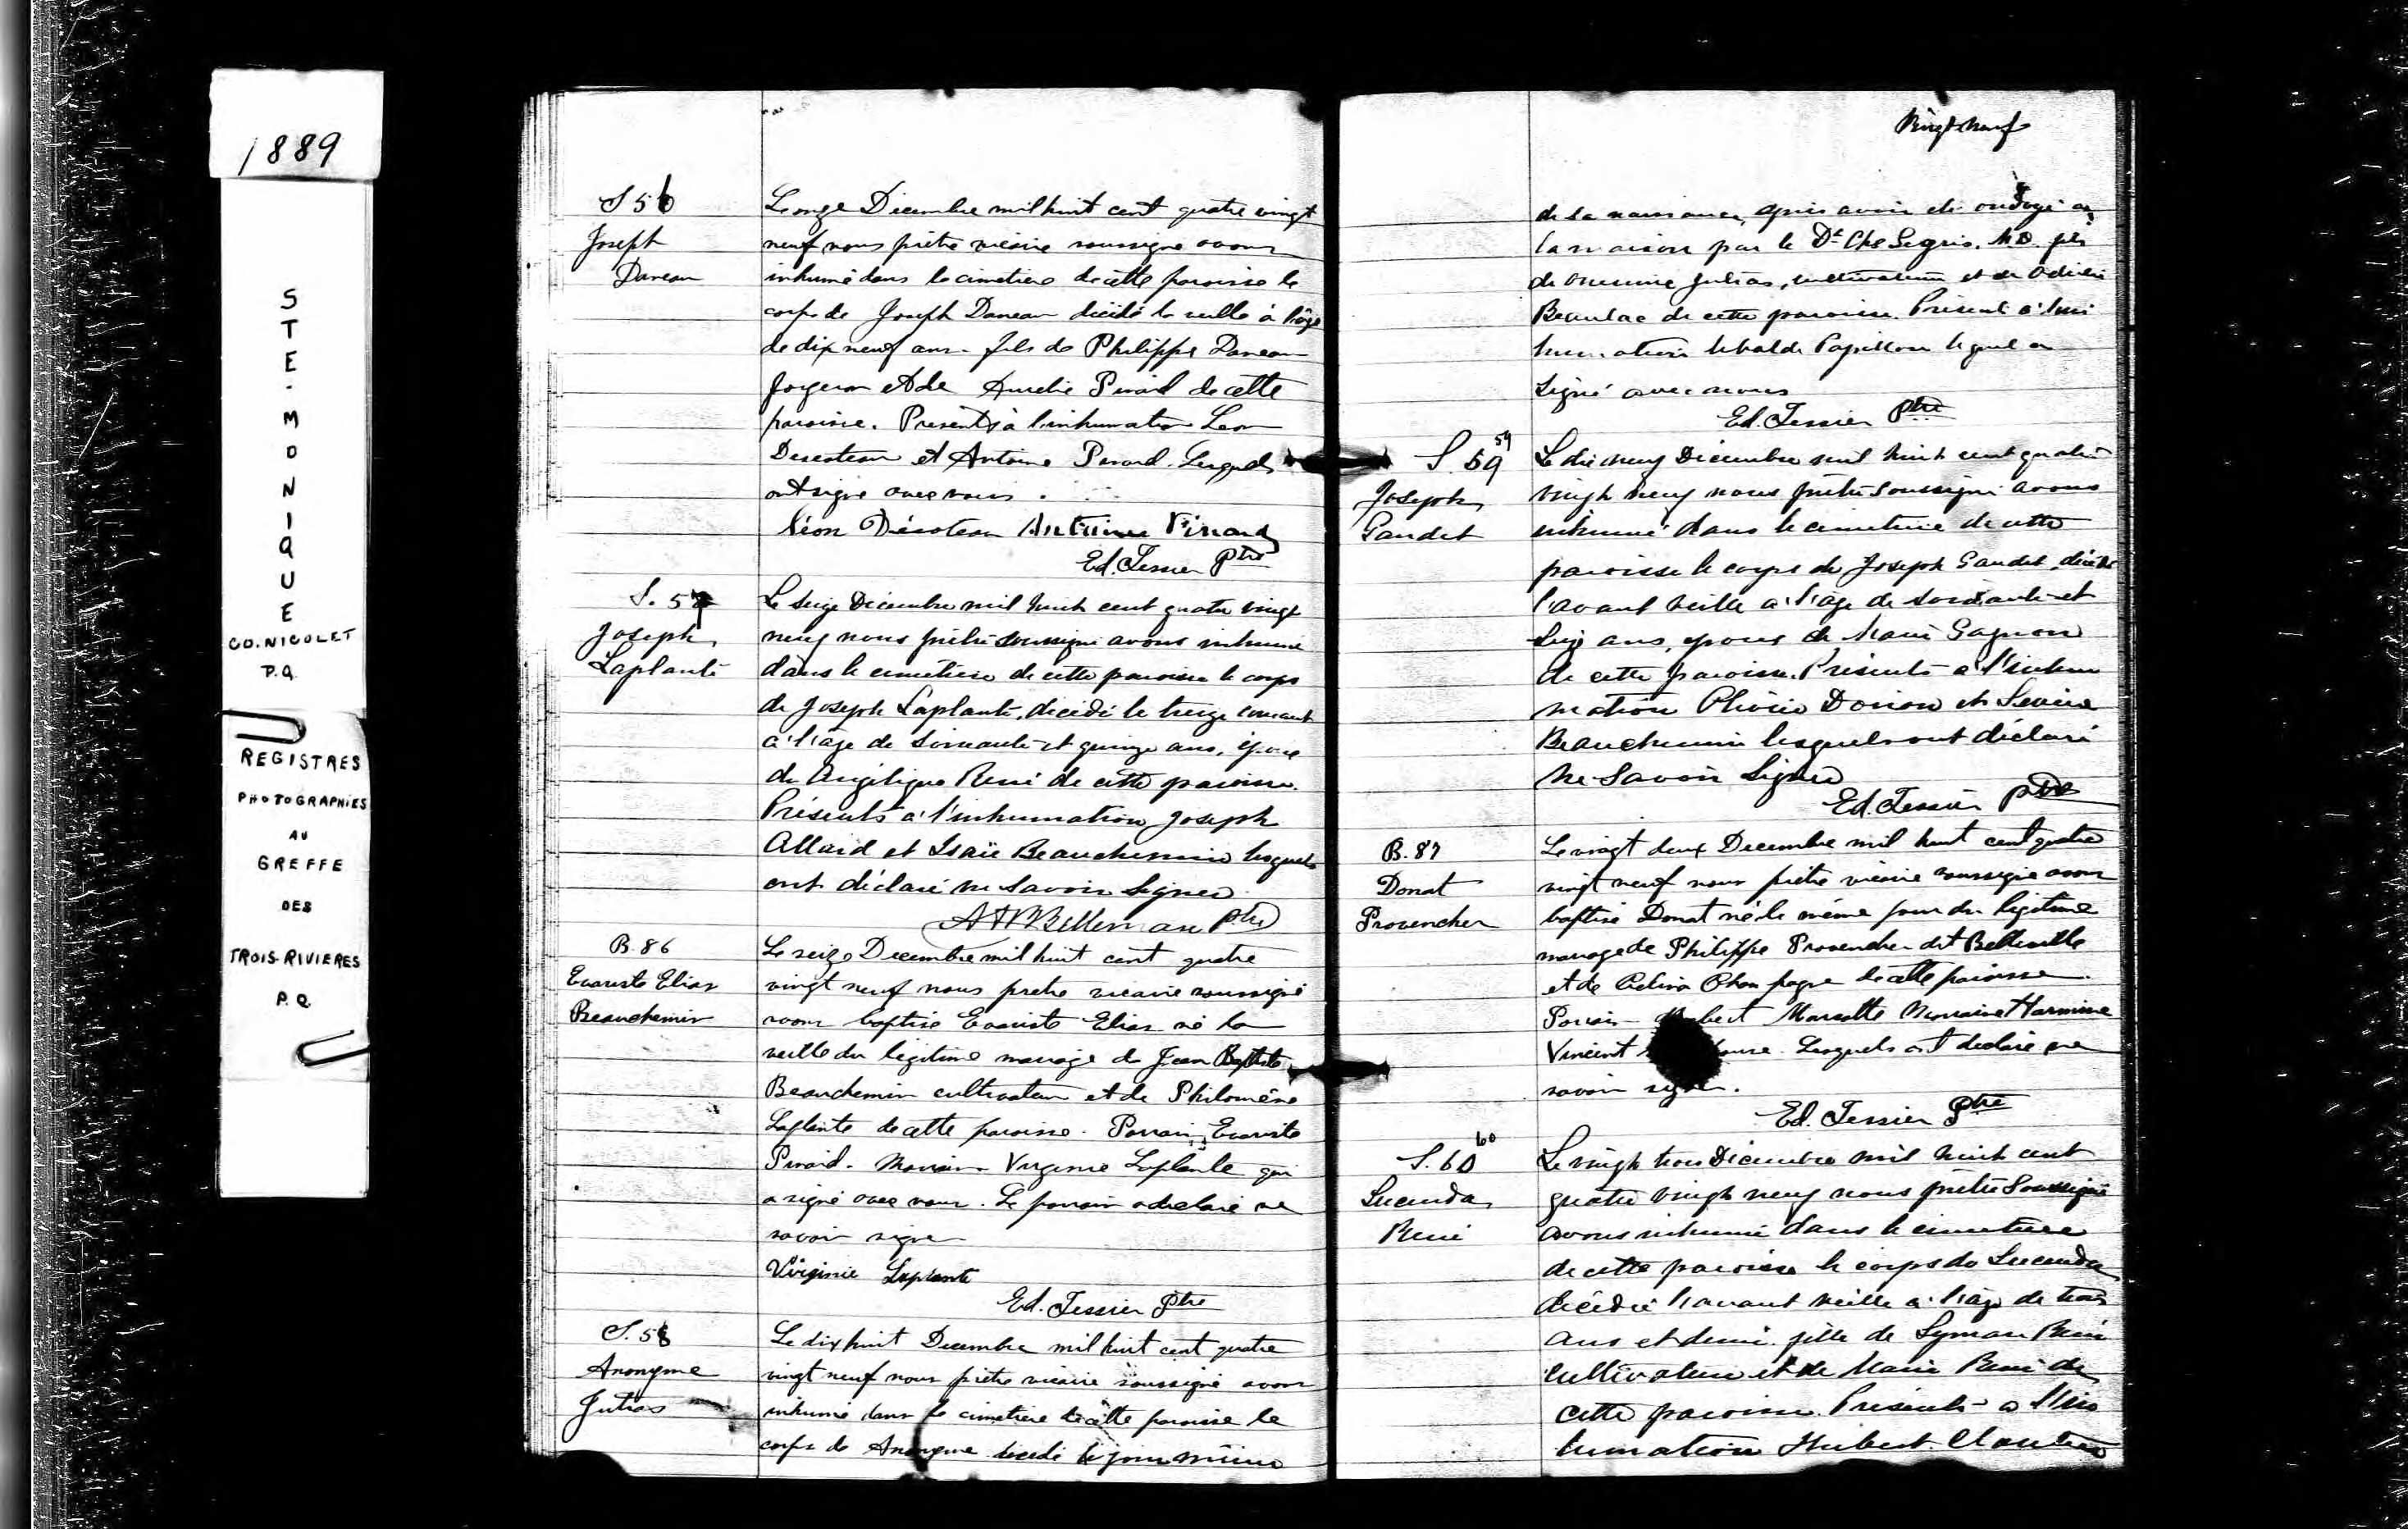 1889
STE. MONIQUE
CO. NICOLET
P.Q.
REGISTRES
PHOTOGRAPHIÉS
AU
GREFFE
DES
TROIS-RIVIERES
P.Q.
S 56
Joseph
Daneau
Le onze Décembre mil huit cent quatre vingt
neuf nous prêtre vicaire soussigné avons
inhumé dans le cimetière de cette paroisse le
corps de Joseph Daneau décédé la veille à l'âge
de dix neuf ans fils de Philippe Daneau
forgeron et de Aurélie Pinard de cette
paroisse. Présents à l'inhumation Léon
Descoteau et Antoine Pinard. Lesquels
ont signé avec nous.
Léon Décoteau Antoine Pinard
Ed. Tessier Ptre
S. 57
Joseph
Laplante
Le seize Décembre mil huit cent quatre vingt
neuf nous prêtre soussigné avons inhumé
dans le cimetière de cette paroisse le corps
de Joseph Laplante, décédé le treize courant
à l'âge de soixante et quinze ans, époux
de Angélique René de cette paroisse.
Présents à l'inhumation Joseph
Allard et Isaïe Beauchemin lesquels
ont déclaré ne savoir signer.
Bellemare Ptre
B. 86
Evariste Elias
Beauchemin
Le seize Décembre mil huit cent quatre
vingt neuf nous prêtre vicaire soussigné
avons baptisé Evariste Elias né la
veille du légitime mariage de Jean Baptiste
Beauchemin cultivateur et de Philomène
Laplante de cette paroisse. Parrain, Evariste
Pinard. Marraine Virginie Laplante qui
a signé avec nous. Le parrain a déclaré ne
savoir signer
Virginie Laplante
Ed. Tessier Ptre
S. 58
Anonyme
Jutras
Le dix huit Décembre mil huit cent quatre
vingt neuf nous prêtre vicaire soussigné avons
inhumé dans le cimetière de cette paroisse le
corps de Anonyme décédé le jour même
Vingt neuf
de sa naissance, après avoir été ondoyé à
la maison par le Dr Legris. M.D. fils
de Jutras, cultivateur et de
Beaulac de cette paroisse. Présent à l'inhu
mation Papillon lequel a
signé avec nous
Ed. Tessier Ptre
S. 59 59
Joseph
Gaudet
Le dix neuf Décembre mil huit cent quatre
vingt neuf nous prêtre soussigné avons
inhumé dans le cimetière de cette
paroisse le corps de Joseph Gaudet, décédé
l'avant veille à l'âge de soixante et
seize ans, époux de Marie Gagnon
de cette paroisse. Présents à l'inhu
mation Dorion et Sévère
Beauchemin lesquels ont déclaré
ne savoir signer
Ed. Tessier Ptre
B. 87
Donat
Provencher
Le vingt deux Decembre mil huit cent quatre
vingt neuf nous prêtre vicaire soussigné avons
baptisé Donat né le même jour du légitime
mariage de Philippe Provencher dit Belleville
et de Celina de cette paroisse.
Parrain Marcotte Marraine Harmine
Vincent Lesquels ont déclaré ne
savoir signer.
Ed. Tessier Ptre
S. 60 60
Lucinda
René
Le vingt trois Décembre mil huit cent
quatre vingt neuf nous prêtre soussigné
avons inhumé dans le cimetière
de cette paroisse le corps de Lucinda
décédée l'avant veille à l'âge de trois
ans et demi fille de Lyman René
cultivateur et de Marie René de
cette paroisse. Présents à l'in
humation Hubert Cloutier